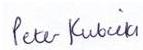 Peter Kubicki